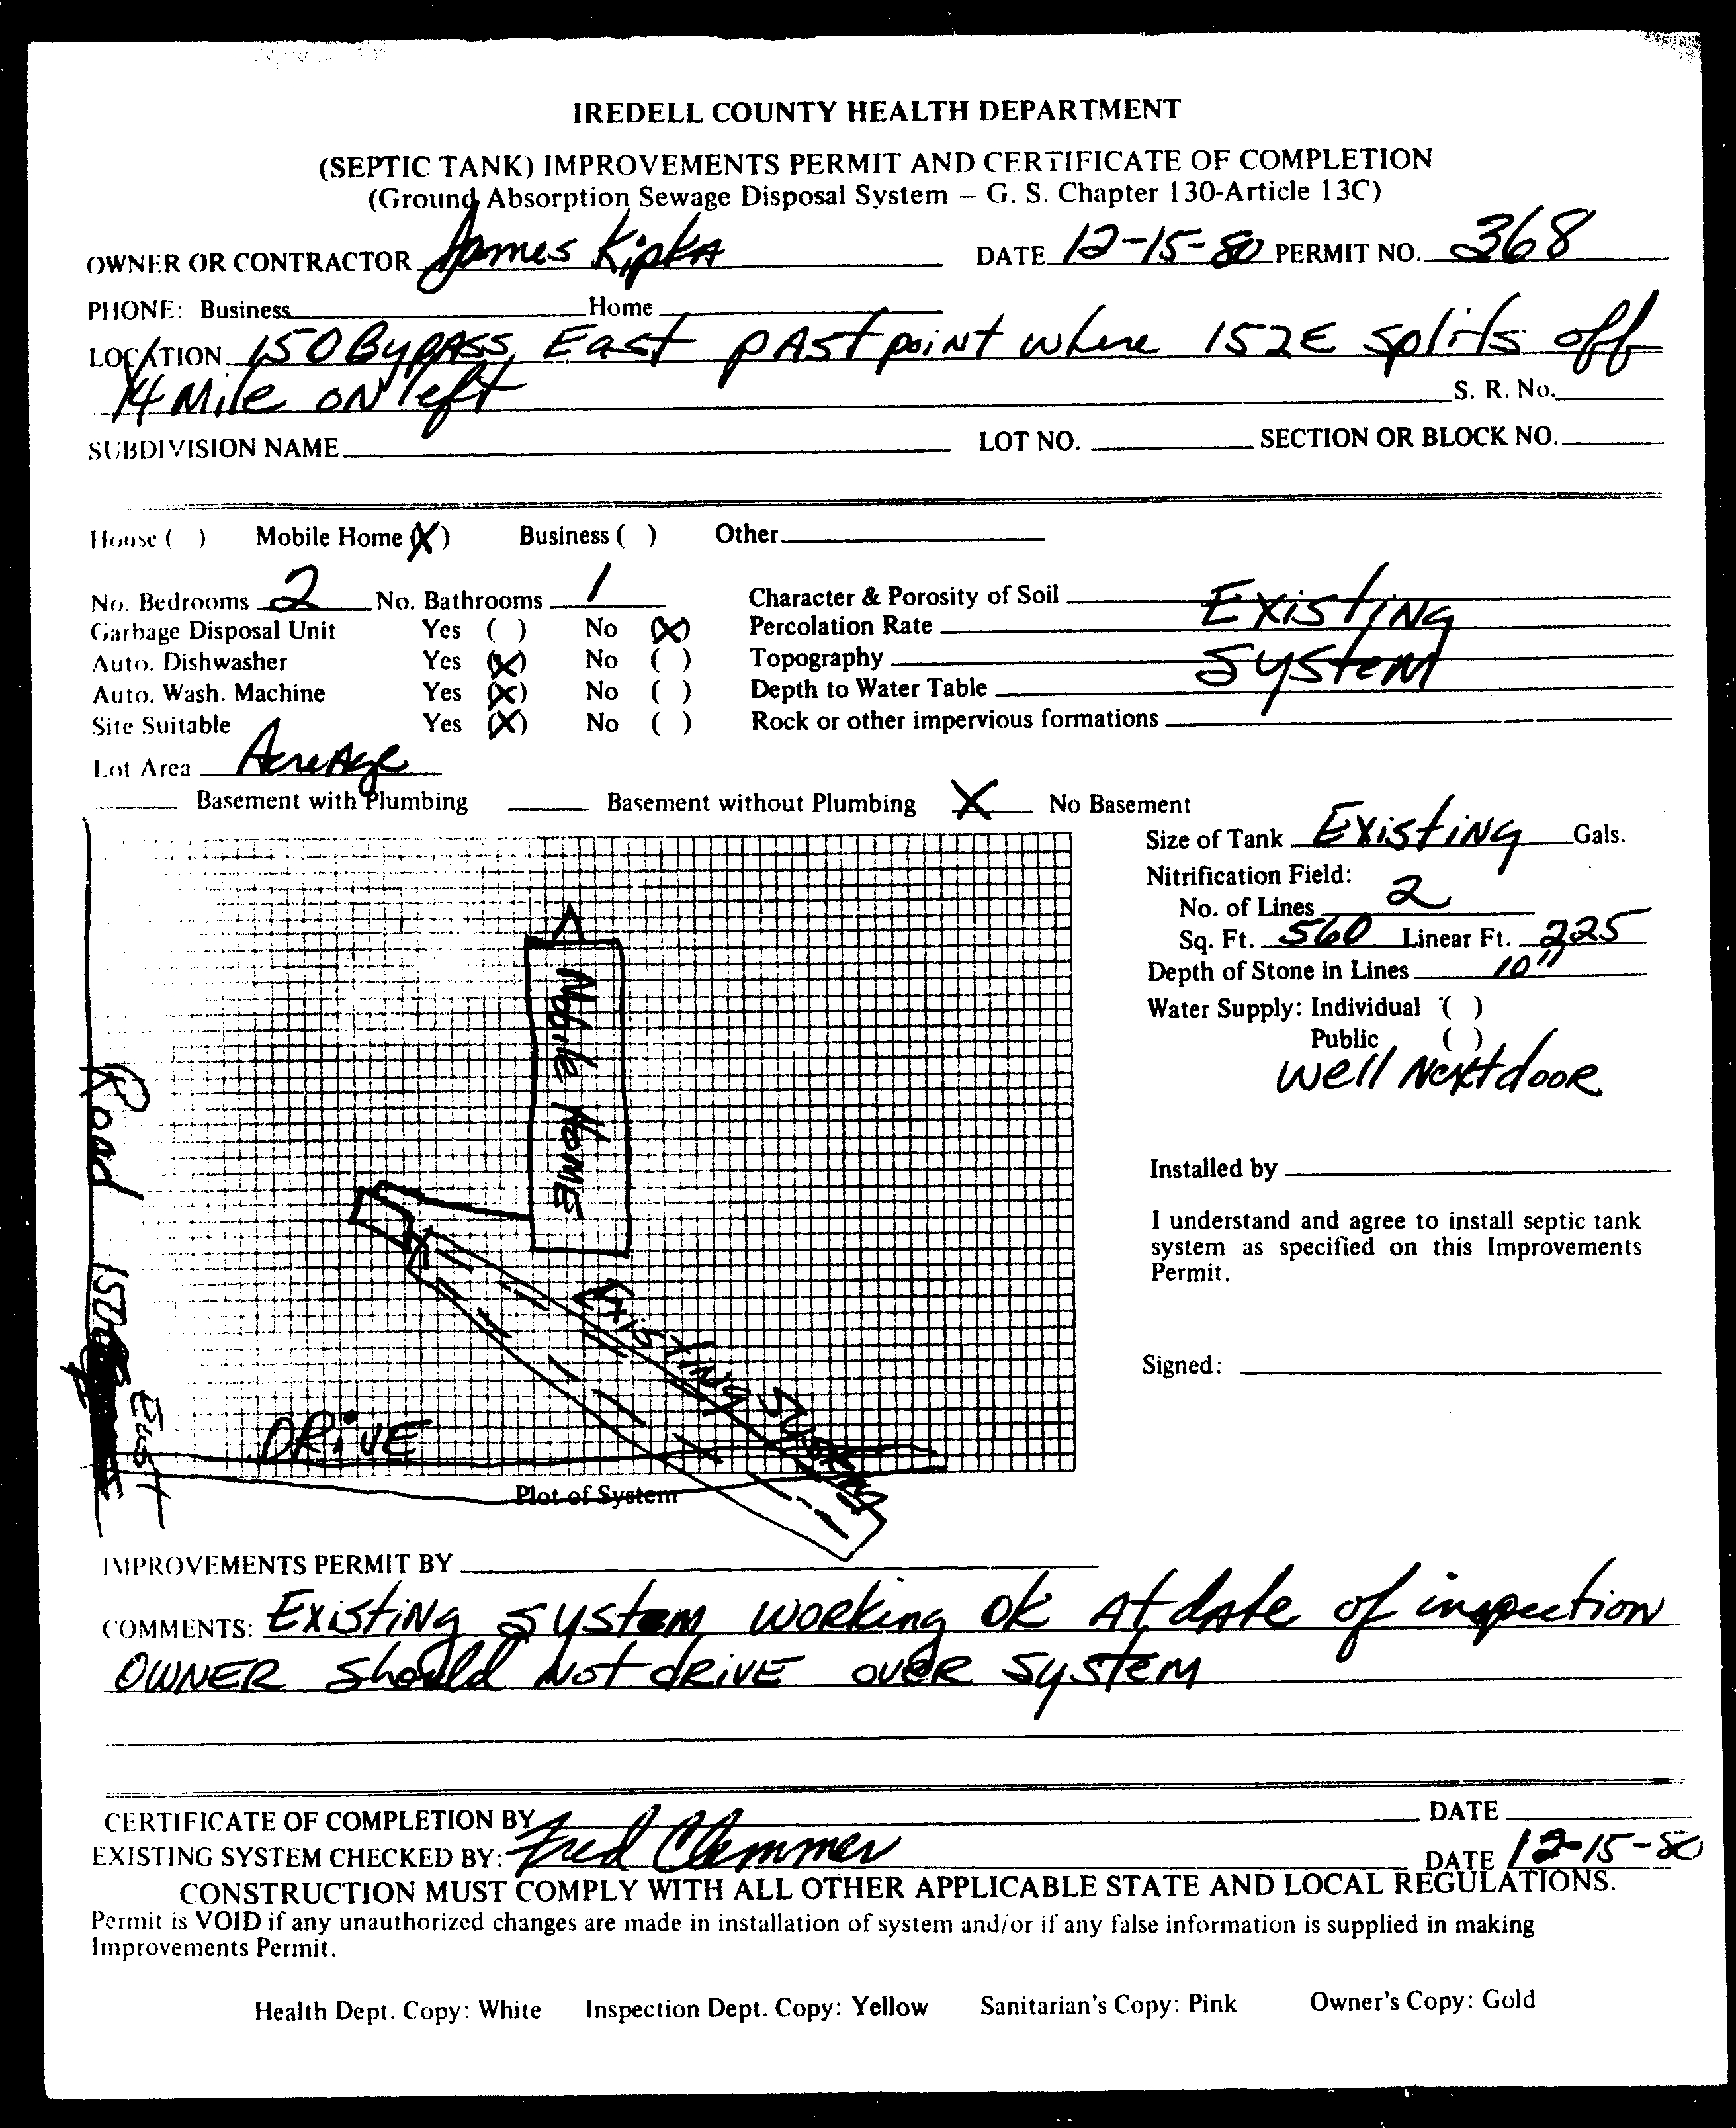 IREDELL COUNTY HEALTH DEPARTMENT
(SEPTIC TANK) IMPROVEMENTS PERMIT AND CERTIFICATE OF COMPLETION
(Ground Absorption Sewage Disposal System – G. S. Chapter 130-Article 13C)
OWNER OR CONTRACTOR James Kipka DATE 12-15-80 PERMIT NO. 368
PHONE: Business Home
LOCATION 150 Bypass, East past point where 152E splits off
1/4 Mile on left S. R. No.
SUBDIVISION NAME LOT NO. SECTION OR BLOCK NO.
House ( ) Mobile Home (X) Business ( ) Other
No. Bedrooms 2 No. Bathrooms 1 Character & Porosity of Soil Existing
Garbage Disposal Unit Yes ( ) No (X) Percolation Rate
Auto. Dishwasher Yes (X) No ( ) Topography System
Auto. Wash. Machine Yes (X) No ( ) Depth to Water Table
Site Suitable Yes (X) No ( ) Rock or other impervious formations
Lot Area Acreage
Basement with Plumbing Basement without Plumbing X No Basement
Size of Tank Existing Gals.
Nitrification Field:
No. of Lines 2
Sq. Ft. 560 Linear Ft. 225
Depth of Stone in Lines 10"
Water Supply: Individual ( )
Public ( )
well Next door
Installed by
I understand and agree to install septic tank
system as specified on this Improvements
Permit.
Signed:
Mobile Home
Road
East
Existing System
DRIVE
Plot of System
IMPROVEMENTS PERMIT BY
COMMENTS: Existing system working ok At date of inspection
OWNER should Not drive over system
CERTIFICATE OF COMPLETION BY DATE
EXISTING SYSTEM CHECKED BY: Fred Clemmer DATE 12-15-80
CONSTRUCTION MUST COMPLY WITH ALL OTHER APPLICABLE STATE AND LOCAL REGULATIONS.
Permit is VOID if any unauthorized changes are made in installation of system and/or if any false information is supplied in making
Improvements Permit.
Health Dept. Copy: White Inspection Dept. Copy: Yellow Sanitarian's Copy: Pink Owner's Copy: Gold